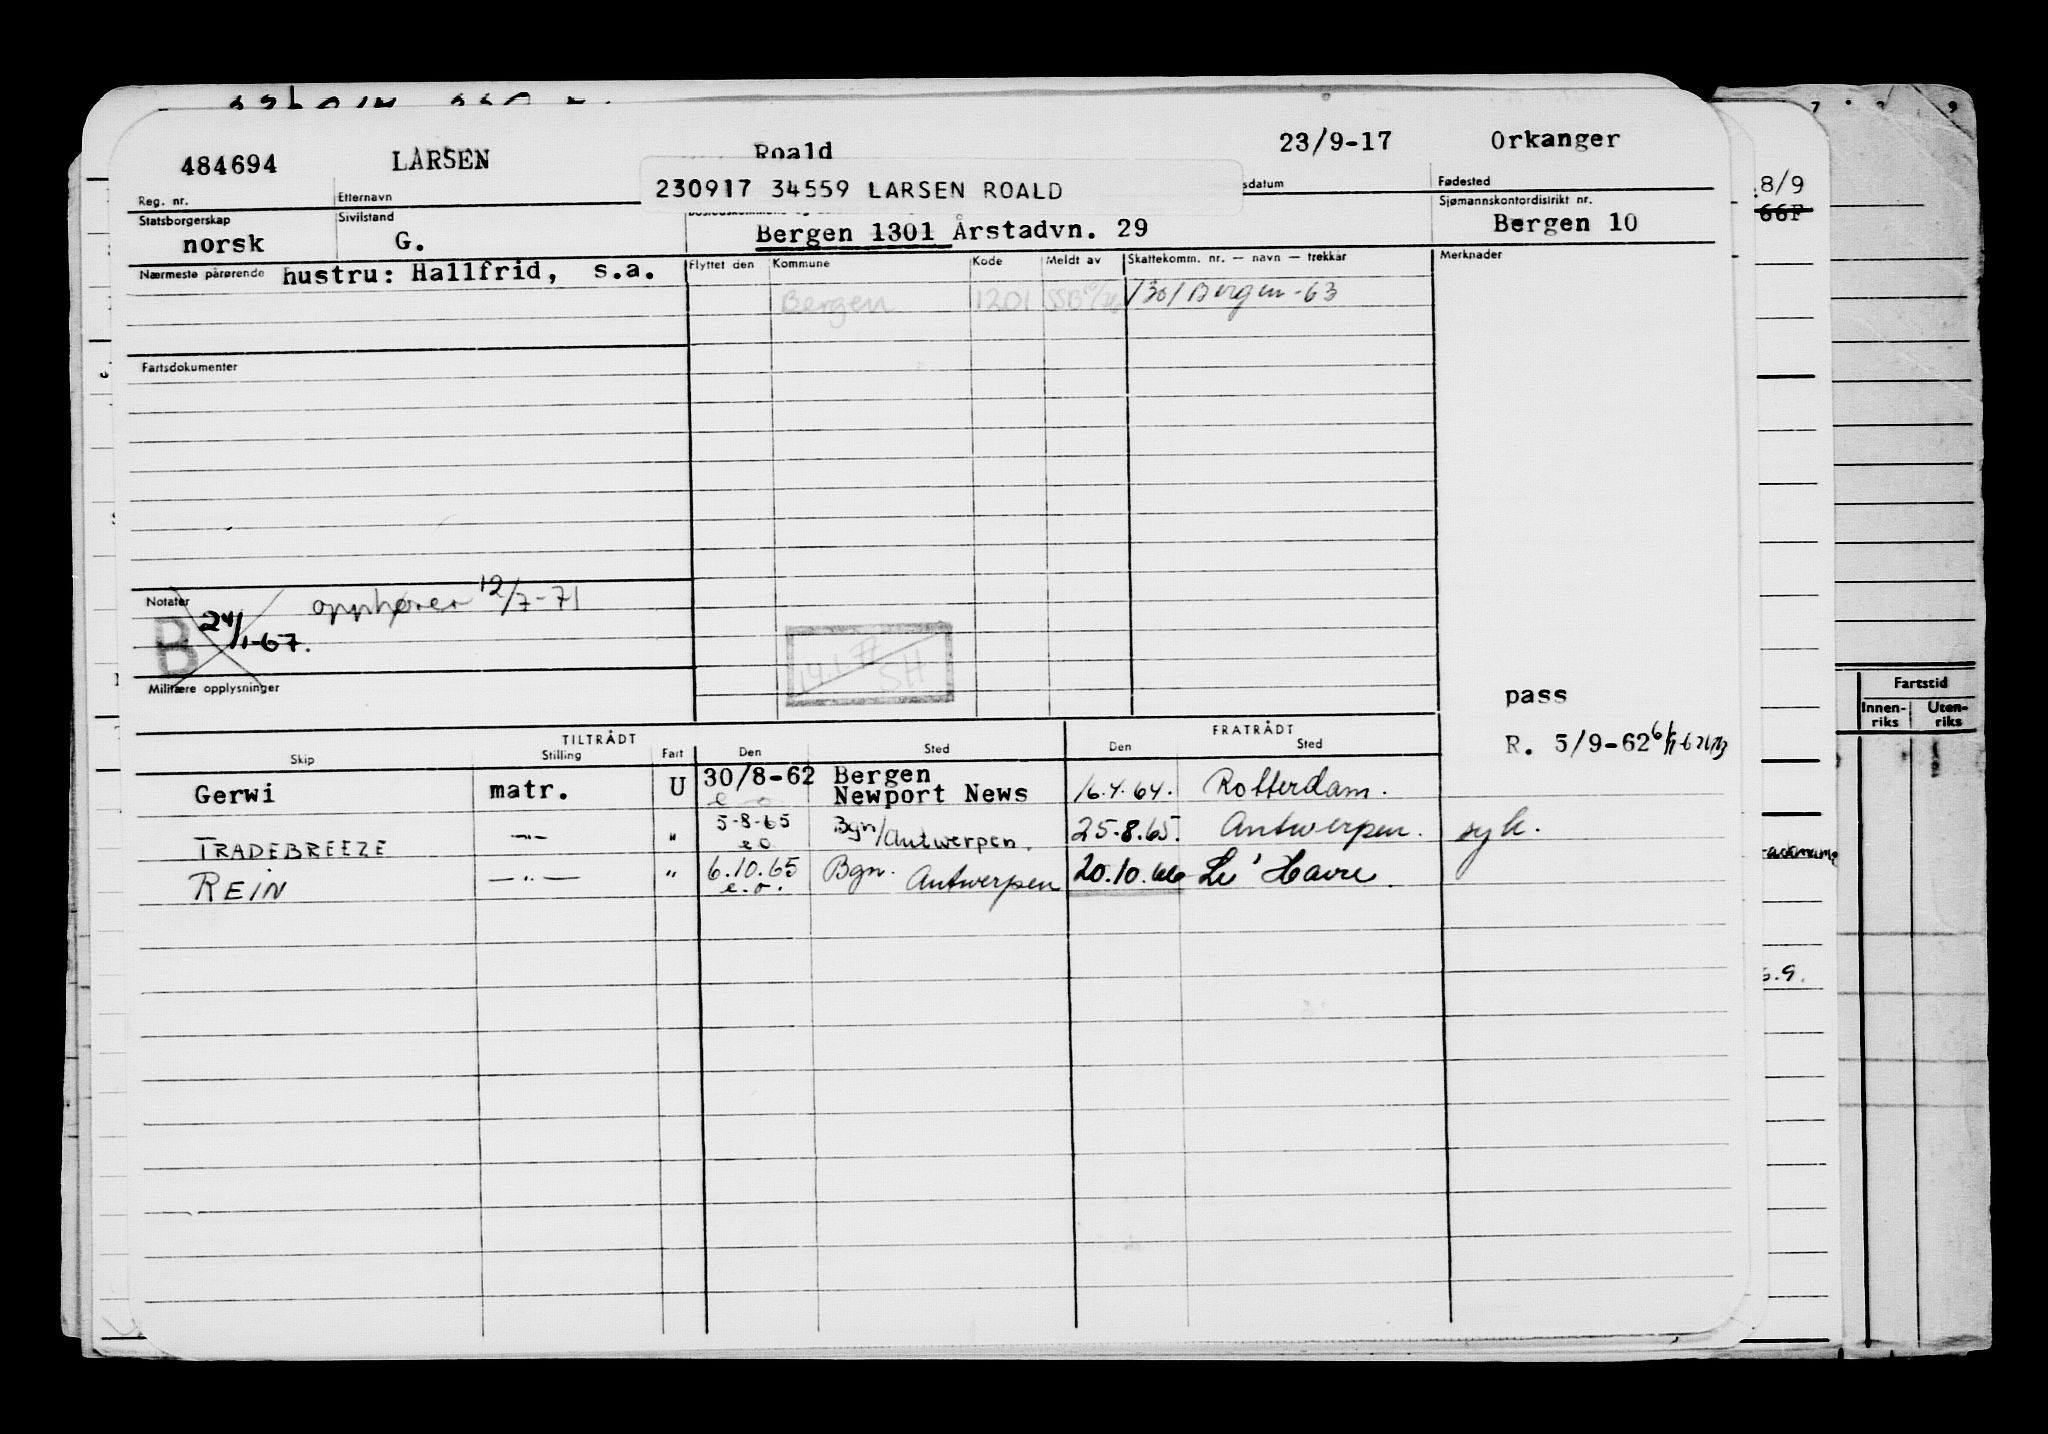 484694 LARSEN Roald 23/9-17 Orkanger
230917 34559 LARSEN ROALD
Reg. nr. Etternavn sdatum Fødested
Statsborgerskap Sivilstand Sjømannskontordistrikt nr.
norsk G. Bergen 1301 Årstadvn. 29 Bergen 10
Nærmeste pårørende hustru: Hallfrid, s.a. Flyttet den Kommune Kode Meldt av Skattekomm. nr. — navn — trekkår Merknader
Bergen 1201 1301 Bergen-63
Fartsdokumenter
Notater opphører 12/7-71
B 24/1-67.
Militære opplysninger
pass
TILTRÅDT FRATRÅDT
R. 5/9-62
Skip Stilling Fart Den Sted Den Sted
Gerwi matr. U 30/8-62 Bergen Newport News 16.4.64. Rotterdam.
TRADEBREEZE —"— " 5-8-65 eo Bgn/Antwerpen. 25.8.65. Antwerpen. syk.
REIN —"— " 6.10.65 e.o. Bgn. Antwerpen 20.10.66 Le' Havre.
8/9
66F
7 9
Fartstid
Innen-riks Uten-riks